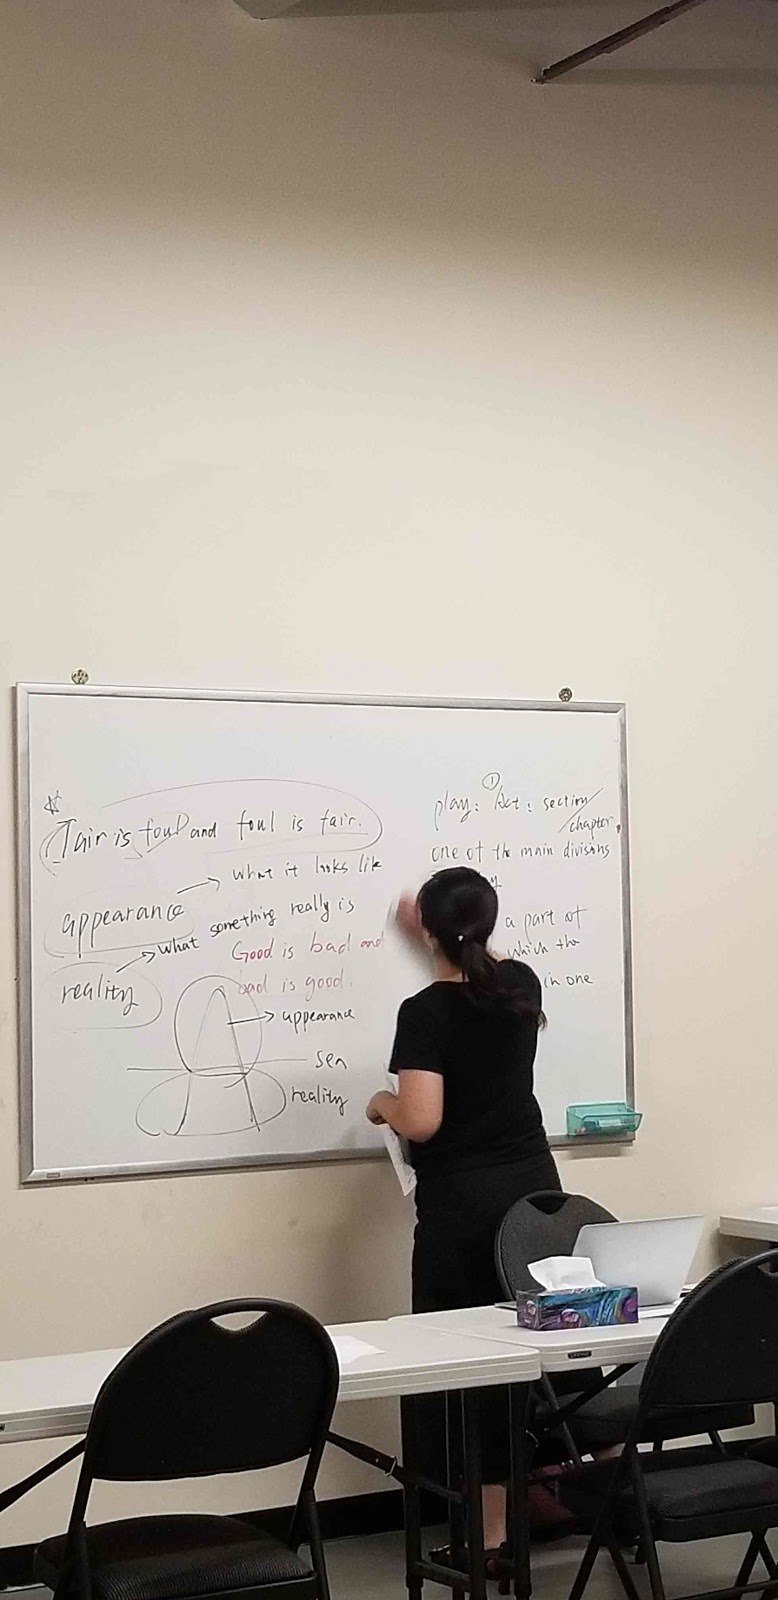 Fair is foul and foul is fair.
appearance → what it looks like
reality → what something really is
Good is bad and
bad is good.
→ appearance
sea
reality
play: ① Act: section/
chapter,
one of the main divisions
a part of
which the
in one